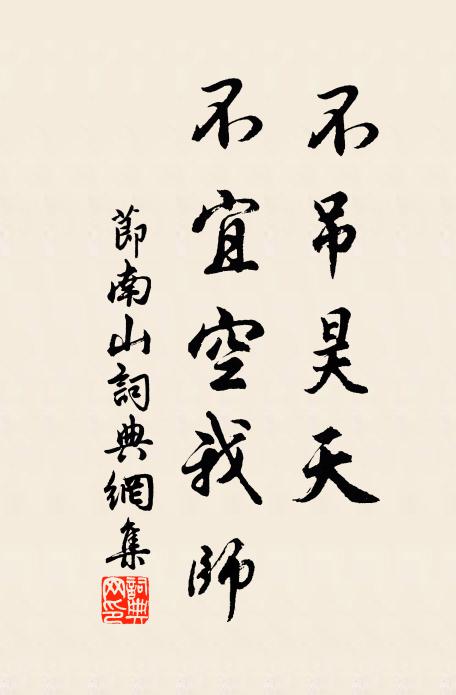 不吊昊天
不宜空我師
節南山詞典網集
詞典网印